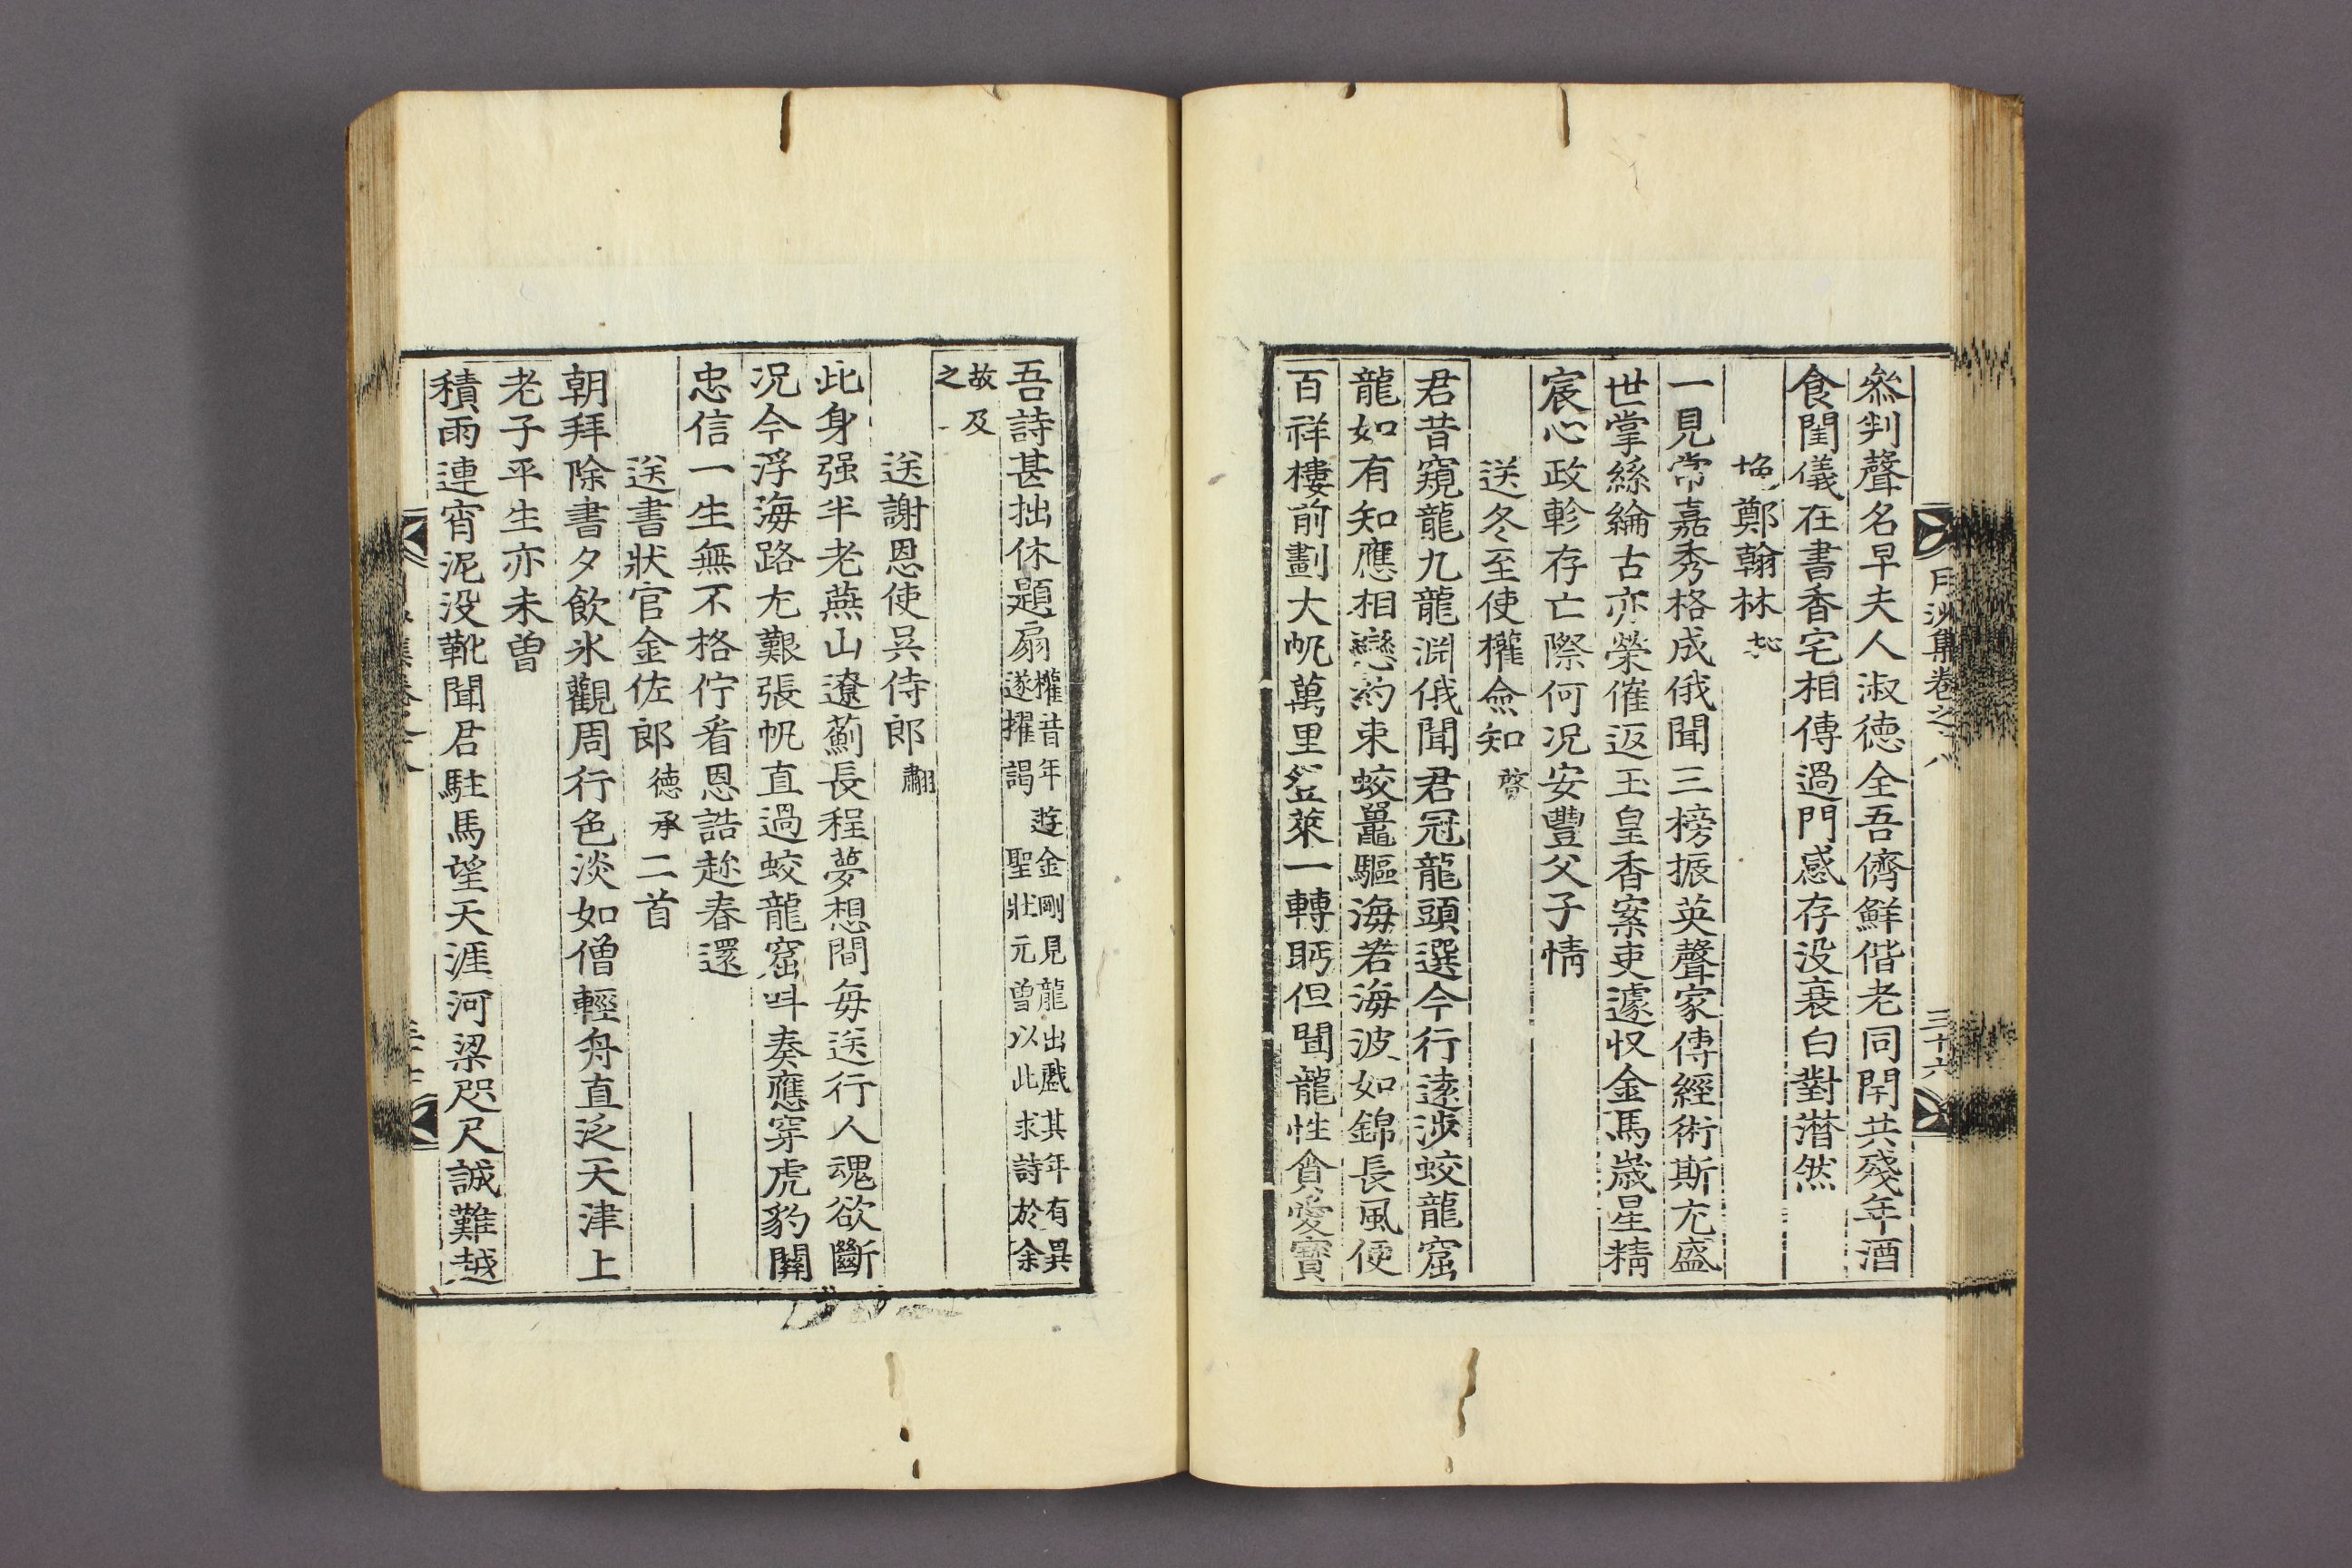 月沙集卷之八
三十六
叅判聲名早夫人淑德全吾儕鮮偕老同閈共殘年酒
食閨儀在書香宅相傳過門感存没衰白對潸然
挽鄭翰林
一見常嘉秀格成俄聞三榜振英聲家傳經術斯尤盛
世掌絲綸古亦榮催返玉皇香案吏遽収金馬嵗星精
宸心政軫存亡際何况安豐父子情
送冬至使權僉知
君昔窺龍九龍淵俄聞君冠龍頭選今行逺涉蛟龍窟
龍如有知應相戀約束蛟鼉驅海若海波如錦長風便
百祥樓前劃大帆萬里登萊一轉眄但聞龍性貪愛寶
吾詩甚拙休題扇權昔年遊金剛見龍出戲其年有異
遂擢謁聖壯元曾以此求詩於余
故及
之
送謝恩使吴侍郎翽
此身强半老燕山遼薊長程夢想間每送行人魂欲斷
况今浮海路尤艱張帆直過蛟龍窟呌奏應穿虎豹關
忠信一生無不格佇看恩誥趂春還
送書狀官金佐郎德承二首
朝拜除書夕飮氷觀周行色淡如僧輕舟直泛天津上
老子平生亦未曽
積雨連宵泥没靴聞君駐馬望天涯河梁咫尺誠難越